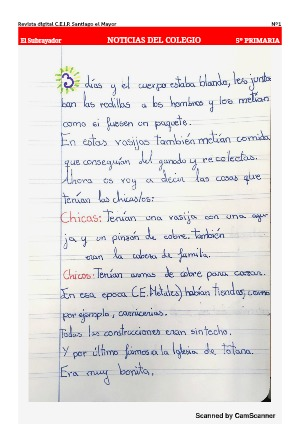 Revista digital C.E.I.P. Santiago el Mayor Nº1
El Subrayador NOTICIAS DEL COLEGIO 5º PRIMARIA
3 días y el cuerpo estaba blando, les junta
ban las rodillas a los hombros y los metían
como si fuesen un paquete.
En estas vasijas también metían comida
que conseguían del ganado y recolectas.
Ahora os voy a decir las cosas que
tenían las chicas/os:
Chicas: Tenían una vasija con una agu
ja y un pinzón de cobre. También
eran la cabeza de familia.
Chicos: Tenían armas de cobre para cazar.
En esa época (E. Metales) habían tiendas, como
por ejemplo, carnicerías.
Todas las construcciones eran sin techo.
Y por último fuimos a la Iglesia de Totana.
Era muy bonita.
Scanned by CamScanner